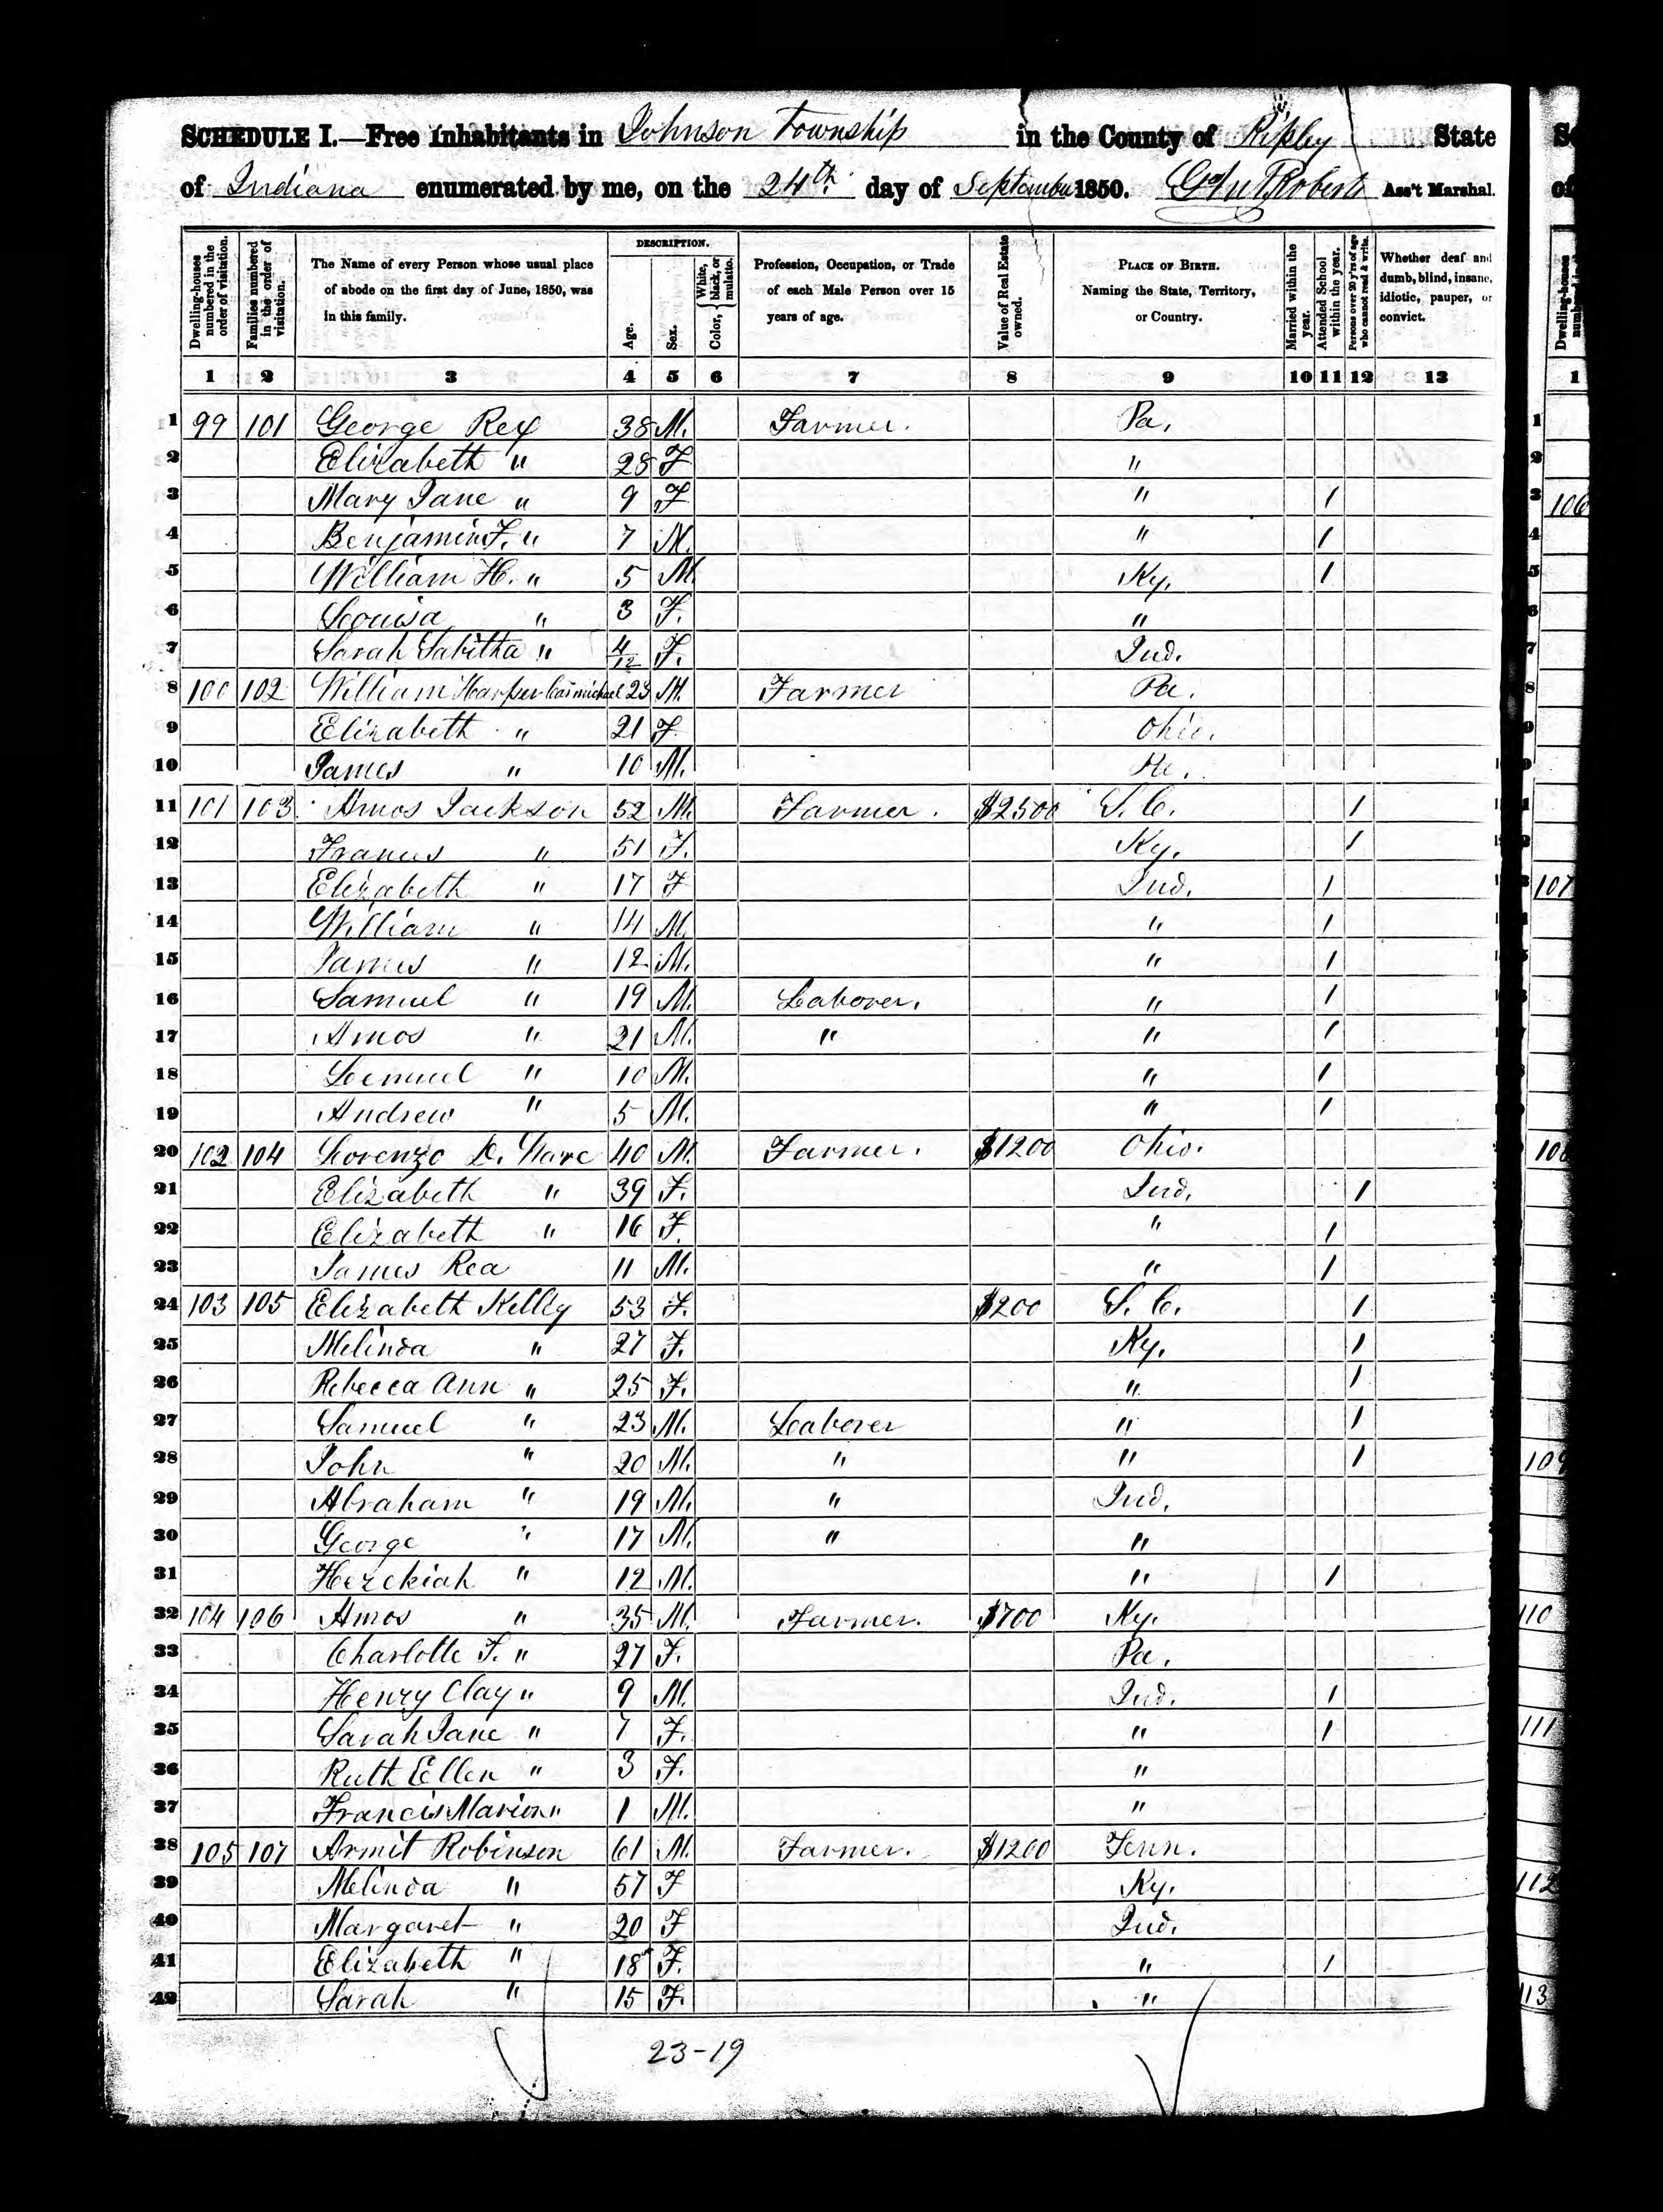 SCHEDULE I.—Free Inhabitants in Johnson Township in the County of Ripley State
of Indiana enumerated by me, on the 24th day of September 1850. Roberts Ass't Marshal.
Dwelling-houses numbered in the order of visitation.
Families numbered in the order of visitation.
The Name of every Person whose usual place of abode on the first day of June, 1850, was in this family.
DESCRIPTION.
Age.
Sex.
Color, { White, black, or mulatto.
Profession, Occupation, or Trade of each Male Person over 15 years of age.
Value of Real Estate owned.
PLACE OF BIRTH. Naming the State, Territory, or Country.
Married within the year.
Attended School within the year.
Persons over 20 y'rs of age who cannot read & write.
Whether deaf and dumb, blind, insane, idiotic, pauper, or convict.
1 2 3 4 5 6 7 8 9 10 11 12 13
1 99 101 George Rex 38 M. Farmer. Pa.
2 Elizabeth " 28 F "
3 Mary Jane " 9 F " 1
4 Benjamin F. " 7 M. " 1
5 William H. " 5 M Ky. 1
6 Louisa " 3 F. "
7 Sarah Tabitha " 4/12 F. Ind.
8 100 102 William Harper Carmichael 23 M. Farmer Pa.
9 Elizabeth " 21 F. Ohio.
10 James " 10 M. Pa.
11 101 103 Amos Jackson 52 M. Farmer. $2500 S. C. 1
12 Frances " 51 F. Ky. 1
13 Elizabeth " 17 F Ind. 1
14 William " 14 M. " 1
15 James " 12 M. " 1
16 Samuel " 19 M. Laborer. " 1
17 Amos " 21 M. " " 1
18 Lemuel " 10 M. " 1
19 Andrew " 5 M. " 1
20 102 104 Lorenzo D. Ware 40 M. Farmer. $1200 Ohio.
21 Elizabeth " 39 F. Ind. 1
22 Elizabeth " 16 F. " 1
23 James Rea 11 M. " 1
24 103 105 Elizabeth Kelley 53 F. $200 S. C. 1
25 Melinda " 27 F. Ky. 1
26 Rebecca Ann " 25 F. " 1
27 Samuel " 23 M. Laborer " 1
28 John " 20 M. " " 1
29 Abraham " 19 M. " Ind.
30 George " 17 M. " "
31 Hezekiah " 12 M. " 1
32 104 106 Amos " 35 M. Farmer. $700 Ky.
33 Charlotte F. " 27 F. Pa.
34 Henry Clay " 9 M. Ind. 1
35 Sarah Jane " 7 F. " 1
36 Ruth Ellen " 3 F. "
37 Francis Marion " 1 M. "
38 105 107 Armit Robinson 61 M. Farmer. $1200 Tenn.
39 Melinda " 57 F Ky.
40 Margaret " 20 F Ind.
41 Elizabeth " 18 F. " 1
42 Sarah " 15 F. "
23-19